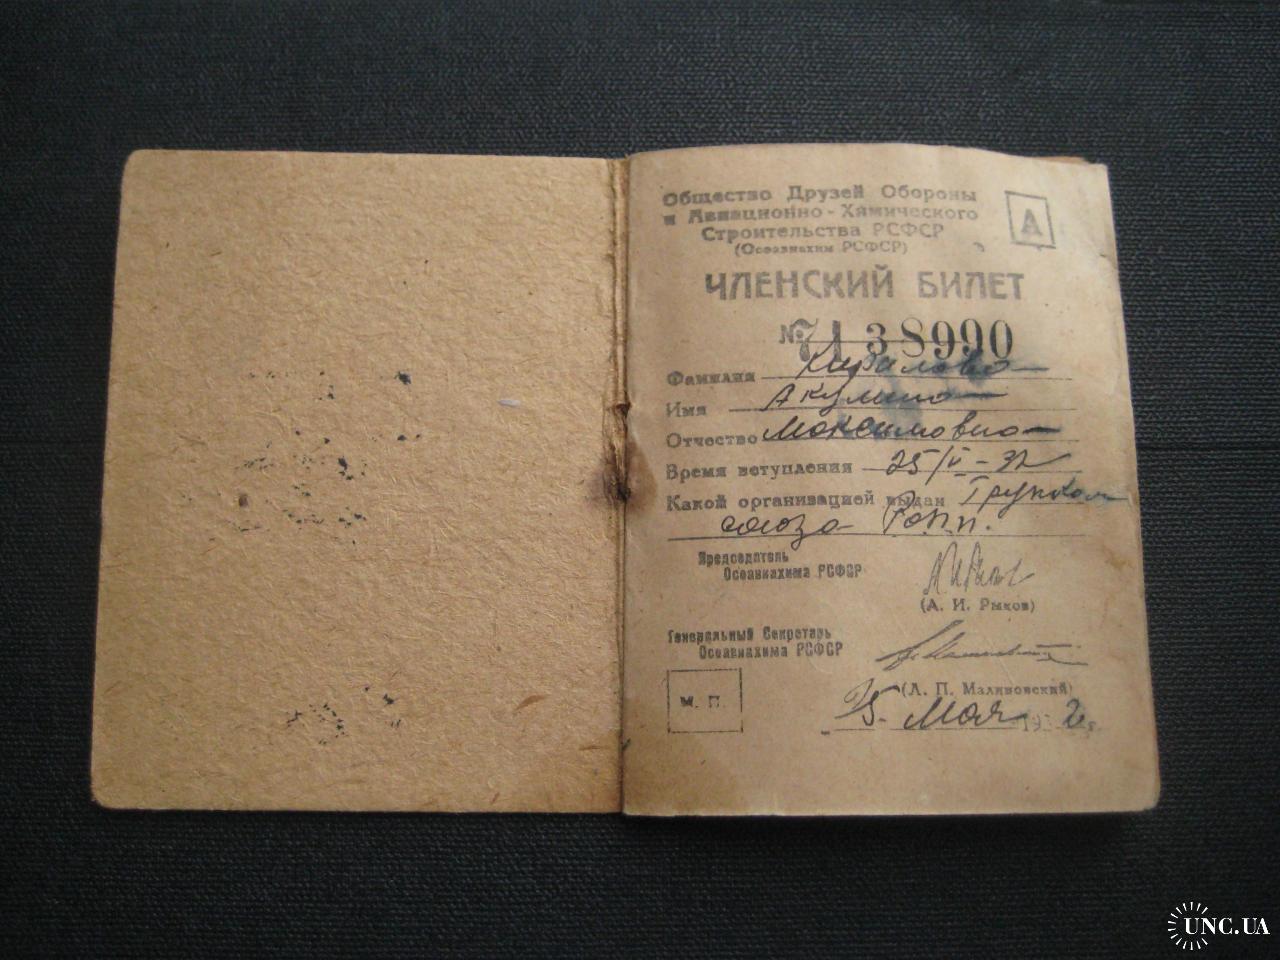 Общество Друзей Обороны
и Авиационно-Химического
Строительства РСФСР
(Осоавиахим РСФСР)
А
ЧЛЕНСКИЙ БИЛЕТ
№ 7138990
Фамилия
Имя Акулина
Отчество Максимовна
Время вступления 25/V-32
Какой организацией выдан Групком
союза
Председатель
Осоавиахима РСФСР
(А. И. Рыков)
Генеральный Секретарь
Осоавиахима РСФСР
(А. П. Малиновский)
М. П.
25 Мая 1932 г.
UNC.UA